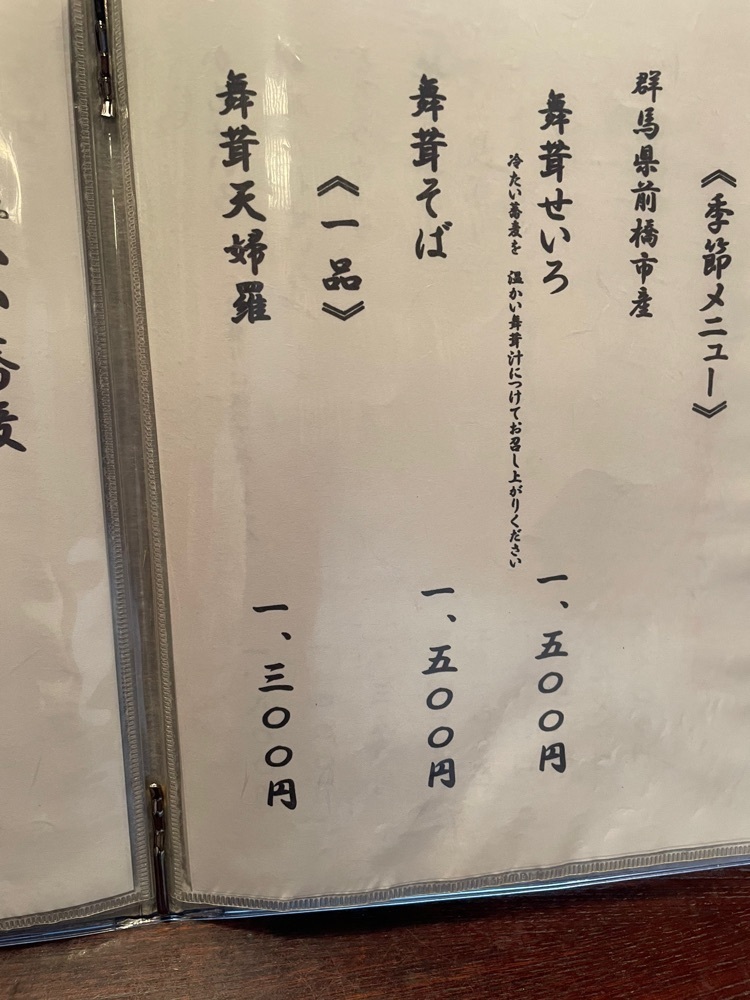 《季節メニュー》
群馬県前橋市産
舞茸せいろ 一、五〇〇円
冷たい蕎麦を 温かい舞茸汁につけてお召し上がりください
舞茸そば 一、五〇〇円
《一品》
舞茸天婦羅 一、三〇〇円